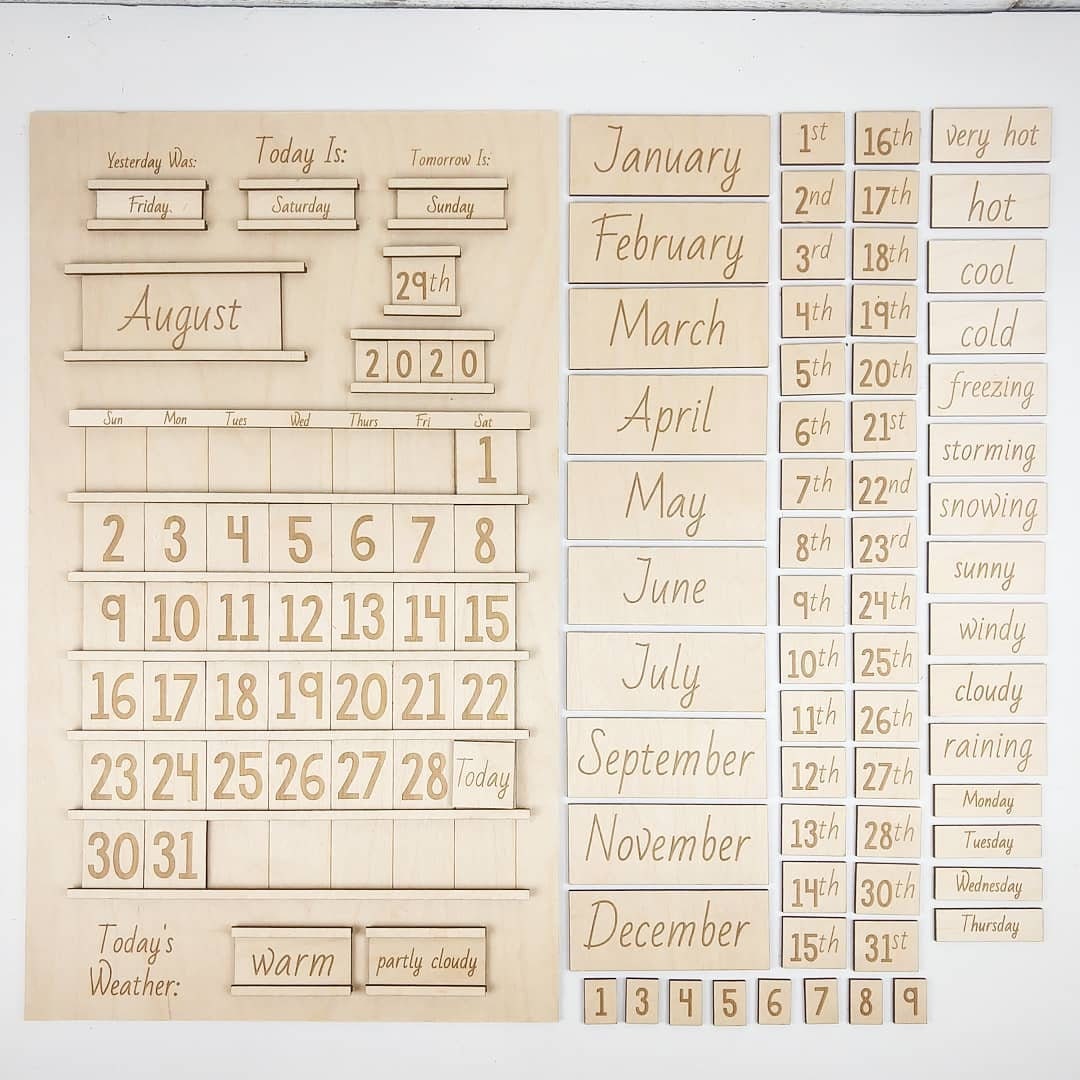 Yesterday Was: Today Is: Tomorrow Is:
Friday Saturday Sunday
29th
August
2020
Sun Mon Tues Wed Thurs Fri Sat
1
2 3 4 5 6 7 8
9 10 11 12 13 14 15
16 17 18 19 20 21 22
23 24 25 26 27 28 Today
30 31
Today's
Weather:
warm
partly cloudy
January
February
March
April
May
June
July
September
November
December
1st 16th
2nd 17th
3rd 18th
4th 19th
5th 20th
6th 21st
7th 22nd
8th 23rd
9th 24th
10th 25th
11th 26th
12th 27th
13th 28th
14th 30th
15th 31st
very hot
hot
cool
cold
freezing
storming
snowing
sunny
windy
cloudy
raining
Monday
Tuesday
Wednesday
Thursday
1 3 4 5 6 7 8 9